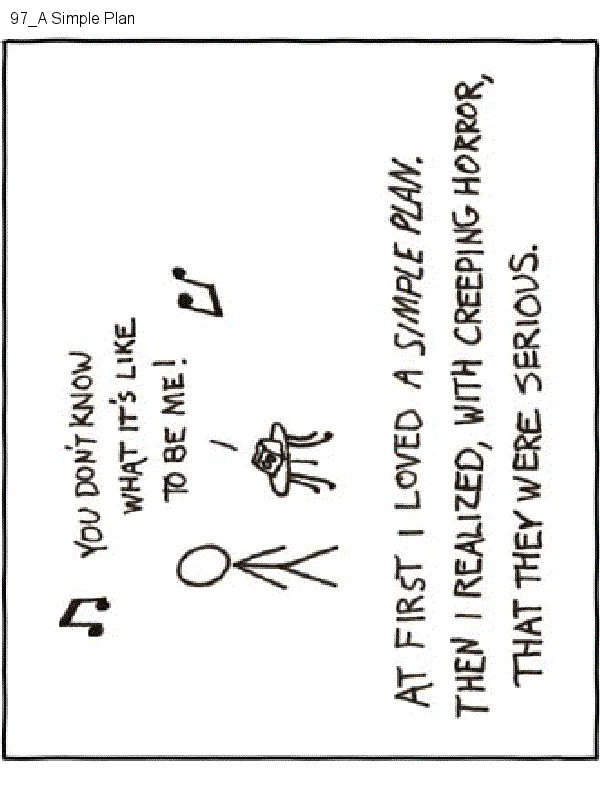 97_A Simple Plan
YOU DON'T KNOW
WHAT IT'S LIKE
TO BE ME!
AT FIRST I LOVED A SIMPLE PLAN.
THEN I REALIZED, WITH CREEPING HORROR,
THAT THEY WERE SERIOUS.